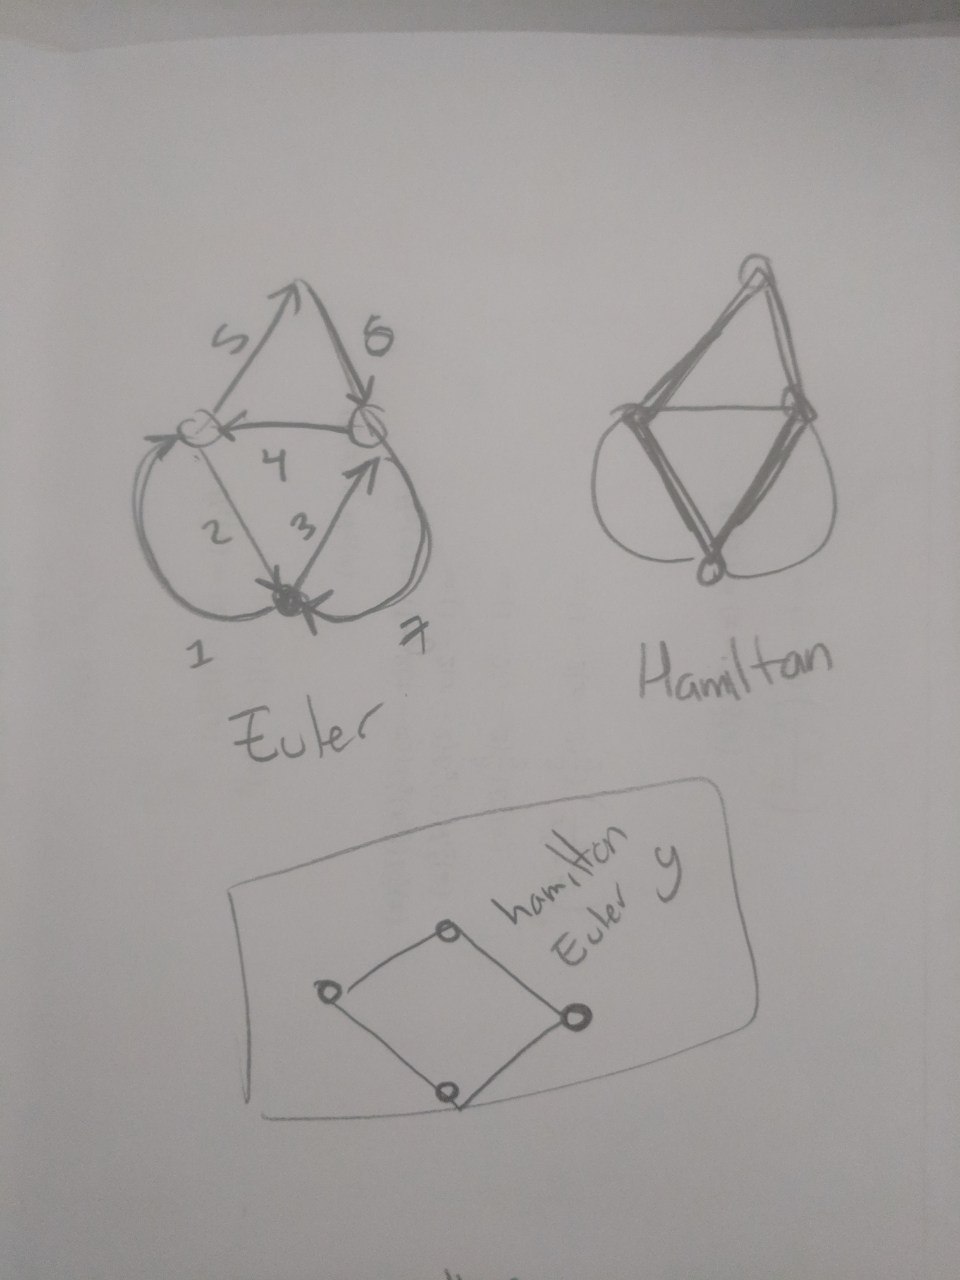 5 6
4
2 3
1 7
Euler
Hamilton
hamilton y
Euler